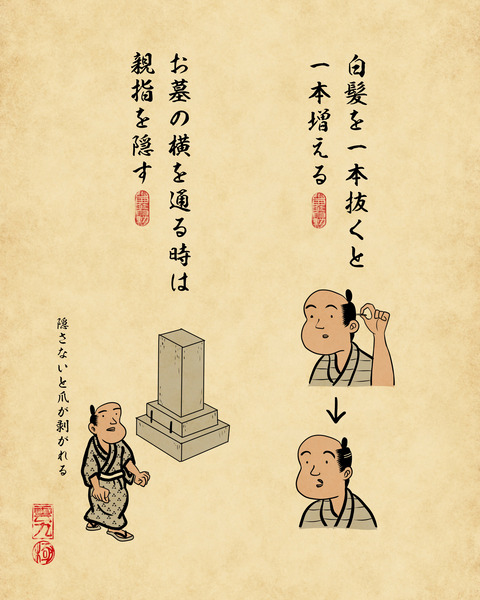 白髪を一本抜くと
一本増える
お墓の横を通る時は
親指を隠す
隠さないと爪が剥がれる